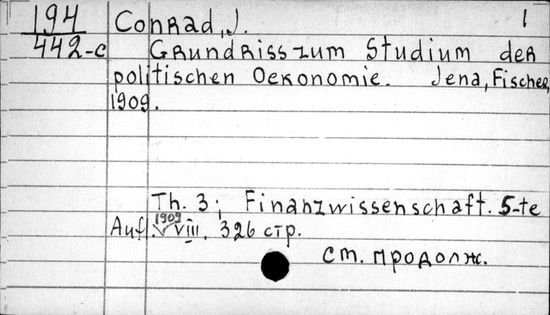 194 Conrad, J. 1
442-c Grundriss zum Studium der
politischen Oekonomie. Jena, Fischer,
1909.
Th. 3; Finanzwissenschaft. 5-te
Auf. 1909 VIII, 326 стр.
См. продолж.